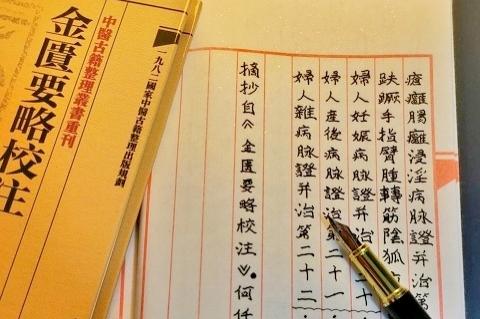 瘡癰腸癰浸淫病脉證并治第
趺蹶手指臂腫轉筋陰狐
婦人妊娠病脉證并治
婦人產後病脉證并治第二十一
婦人雜病脉證并治第二十二
摘抄自《金匱要略校注》。何任
一九八二國家中醫古籍整理出版規劃
中醫古籍整理叢書重刊
金匱要略校注